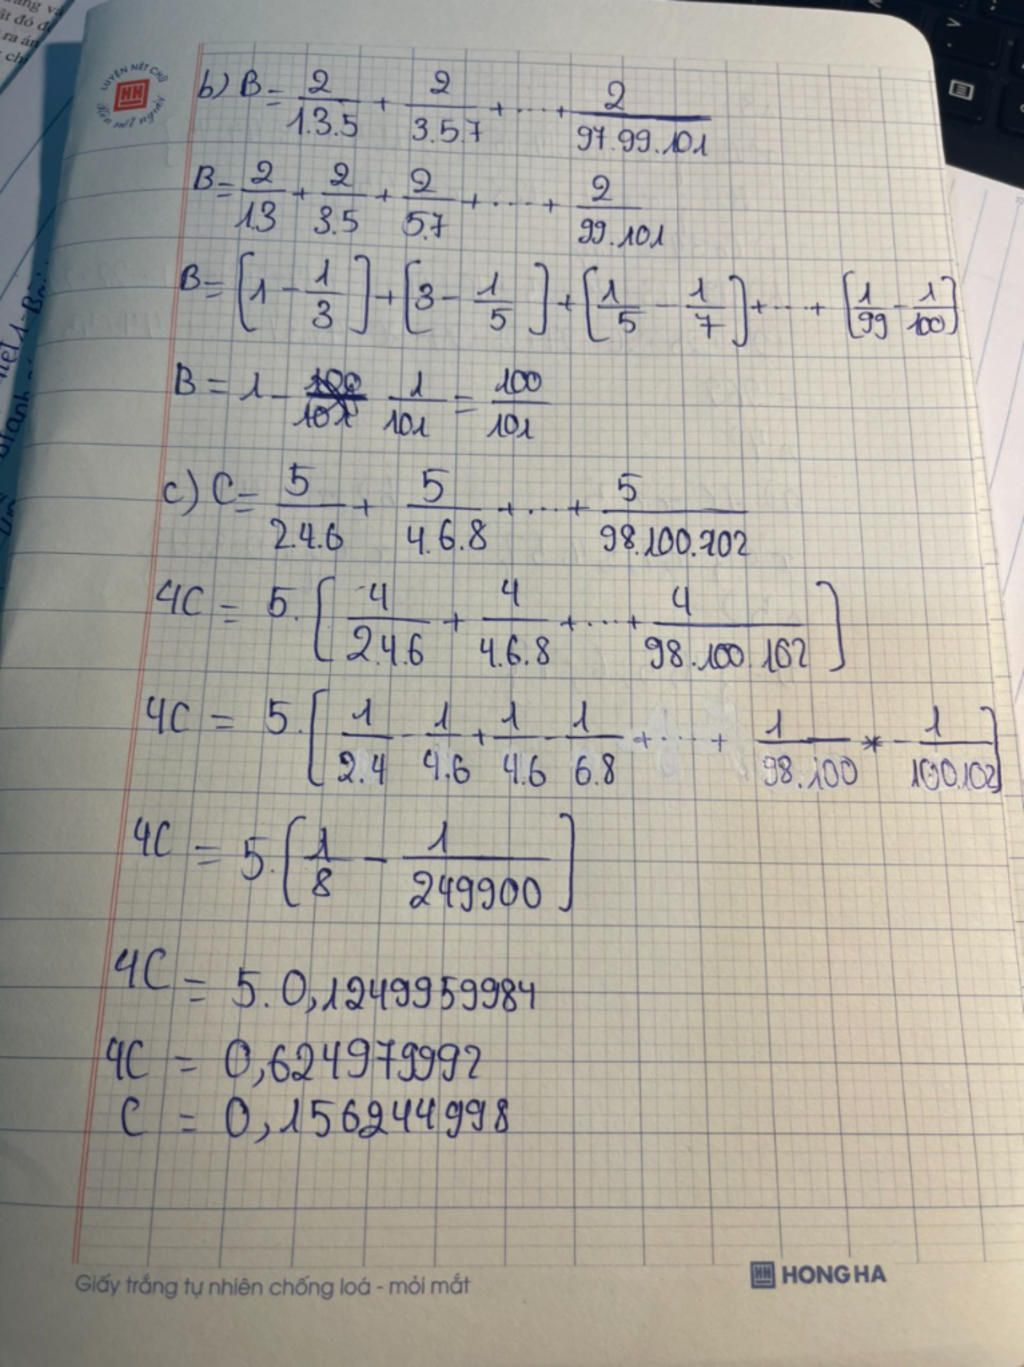 LUYỆN NÉT CHỮ
HH
Rèn nết người
b) B = 2/1.3.5 + 2/3.5.7 + ... + 2/97.99.101
B = 2/1.3 + 2/3.5 + 2/5.7 + ... + 2/99.101
B = [1 - 1/3] + [3 - 1/5] + [1/5 - 1/7] + ... + [1/99 - 1/100]
B = 1 - 1/101 = 100/101
c) C = 5/2.4.6 + 5/4.6.8 + ... + 5/98.100.102
4C = 5.[4/2.4.6 + 4/4.6.8 + ... + 4/98.100.102]
4C = 5.[1/2.4 - 1/4.6 + 1/4.6 - 1/6.8 + ... + 1/98.100 - 1/100.102]
4C = 5.[1/8 - 1/249900]
4C = 5.0,1249959984
4C = 0,624979992
C = 0,156244998
Giấy trắng tự nhiên chống loá - mỏi mắt
HH HONG HA